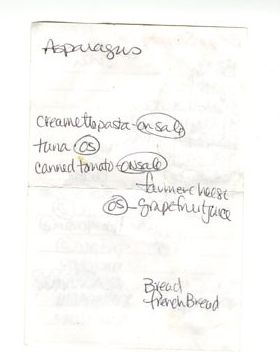 Asparagus
creamette pasta - on sale
tuna OS
canned tomato - on sale
farmer cheese
OS - grapefruit juice
Bread
french Bread